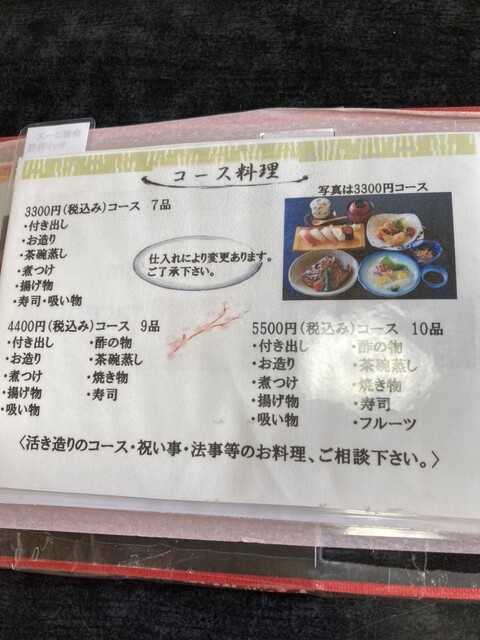 コース料理
写真は3300円コース
3300円(税込み)コース 7品
・付き出し
・お造り
・茶碗蒸し
・煮つけ
・揚げ物
・寿司・吸い物
仕入れにより変更あります。
ご了承下さい。
4400円(税込み)コース 9品
・付き出し ・酢の物
・お造り ・茶碗蒸し
・煮つけ ・焼き物
・揚げ物 ・寿司
・吸い物
5500円(税込み)コース 10品
・付き出し ・酢の物
・お造り ・茶碗蒸し
・煮つけ ・焼き物
・揚げ物 ・寿司
・吸い物 ・フルーツ
〈活き造りのコース・祝い事・法事等のお料理、ご相談下さい。〉